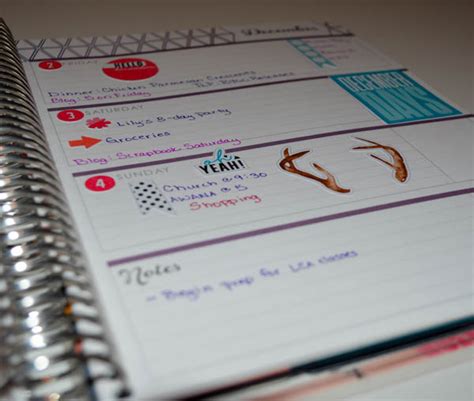 December
2 FRIDAY
HELLO
Dinner: Chicken Parmesan Crescents
Blog: Don Friday
3 SATURDAY
Lily's B-day party
Groceries
Blog: Scrapbook-Saturday
DECEMBER DAILY
4 SUNDAY
oh YEAH!
Church @ 9:30
AWANA @ 5
Shopping
Notes
- Begin prep for LCA classes